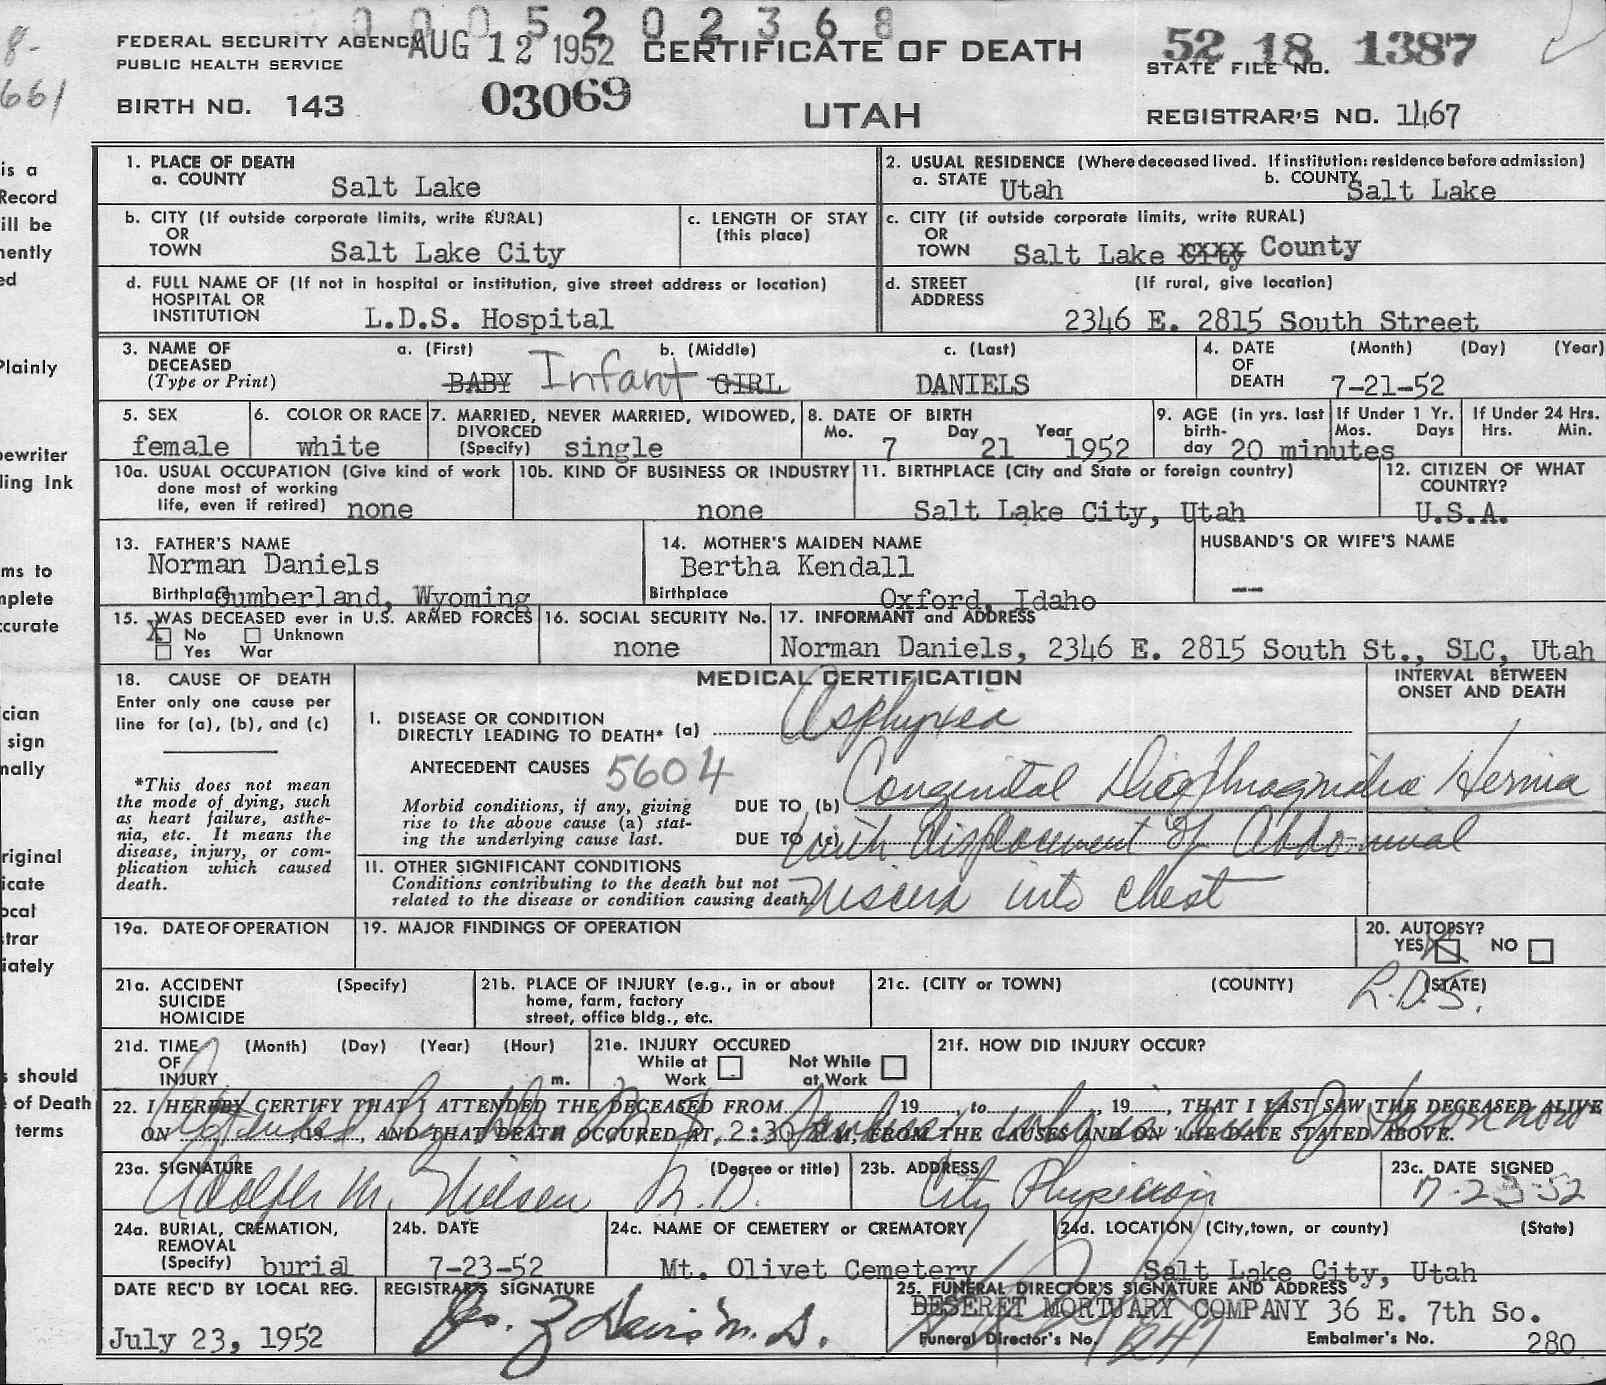 0005202368
8-
661
FEDERAL SECURITY AGENCY AUG 12 1952 CERTIFICATE OF DEATH 52 18 1387
PUBLIC HEALTH SERVICE STATE FILE NO.
BIRTH NO. 143 03069 UTAH REGISTRAR'S NO. 1467
1. PLACE OF DEATH
a. COUNTY Salt Lake
2. USUAL RESIDENCE (Where deceased lived. If institution: residence before admission)
a. STATE Utah b. COUNTY Salt Lake
b. CITY (If outside corporate limits, write RURAL)
OR
TOWN Salt Lake City
c. LENGTH OF STAY
(this place)
c. CITY (if outside corporate limits, write RURAL)
OR
TOWN Salt Lake City County
d. FULL NAME OF (If not in hospital or institution, give street address or location)
HOSPITAL OR
INSTITUTION L.D.S. Hospital
d. STREET (If rural, give location)
ADDRESS
2346 E. 2815 South Street
3. NAME OF a. (First) b. (Middle) c. (Last)
DECEASED
(Type or Print) BABY Infant GIRL DANIELS
4. DATE (Month) (Day) (Year)
OF
DEATH 7-21-52
5. SEX
female
6. COLOR OR RACE
white
7. MARRIED, NEVER MARRIED, WIDOWED,
DIVORCED
(Specify) single
8. DATE OF BIRTH
Mo. 7 Day 21 Year 1952
9. AGE (in yrs. last
birth-
day 20 minutes
If Under 1 Yr.
Mos. Days
If Under 24 Hrs.
Hrs. Min.
10a. USUAL OCCUPATION (Give kind of work
done most of working
life, even if retired) none
10b. KIND OF BUSINESS OR INDUSTRY
none
11. BIRTHPLACE (City and State or foreign country)
Salt Lake City, Utah
12. CITIZEN OF WHAT
COUNTRY?
U.S.A.
13. FATHER'S NAME
Norman Daniels
Birthplace Cumberland, Wyoming
14. MOTHER'S MAIDEN NAME
Bertha Kendall
Birthplace Oxford, Idaho
HUSBAND'S OR WIFE'S NAME
---
15. WAS DECEASED ever in U.S. ARMED FORCES
X No Unknown
Yes War
16. SOCIAL SECURITY No.
none
17. INFORMANT and ADDRESS
Norman Daniels, 2346 E. 2815 South St., SLC, Utah
18. CAUSE OF DEATH
Enter only one cause per
line for (a), (b), and (c)
*This does not mean
the mode of dying, such
as heart failure, asthe-
nia, etc. It means the
disease, injury, or com-
plication which caused
death.
MEDICAL CERTIFICATION
INTERVAL BETWEEN
ONSET AND DEATH
I. DISEASE OR CONDITION
DIRECTLY LEADING TO DEATH* (a) Asphyxia
ANTECEDENT CAUSES 5604
Morbid conditions, if any, giving
rise to the above cause (a) stat-
ing the underlying cause last.
DUE TO (b) Congenital Diaphragmatic Hernia
DUE TO (c) with displacement of Abdominal
II. OTHER SIGNIFICANT CONDITIONS
Conditions contributing to the death but not
related to the disease or condition causing death. viscera into chest
19a. DATE OF OPERATION
19. MAJOR FINDINGS OF OPERATION
20. AUTOPSY?
YES X NO
L.D.S.
21a. ACCIDENT (Specify)
SUICIDE
HOMICIDE
21b. PLACE OF INJURY (e.g., in or about
home, farm, factory
street, office bldg., etc.
21c. (CITY or TOWN) (COUNTY) (STATE)
21d. TIME (Month) (Day) (Year) (Hour)
OF
INJURY m.
21e. INJURY OCCURED
While at Not While
Work at Work
21f. HOW DID INJURY OCCUR?
22. I HEREBY CERTIFY THAT I ATTENDED THE DECEASED FROM, 19, to, 19, THAT I LAST SAW THE DECEASED ALIVE
ON, 19, AND THAT DEATH OCCURED AT 2:30 P.M, FROM THE CAUSES AND ON THE DATE STATED ABOVE.
23a. SIGNATURE (Degree or title)
Adolph M. Nielsen M.D.
23b. ADDRESS
City Physician
23c. DATE SIGNED
7-23-52
24a. BURIAL, CREMATION,
REMOVAL
(Specify) burial
24b. DATE
7-23-52
24c. NAME OF CEMETERY or CREMATORY
Mt. Olivet Cemetery
24d. LOCATION (City, town, or county) (State)
Salt Lake City, Utah
DATE REC'D BY LOCAL REG.
July 23, 1952
REGISTRAR'S SIGNATURE
25. FUNERAL DIRECTOR'S SIGNATURE AND ADDRESS
DESERET MORTUARY COMPANY 36 E. 7th So.
Funeral Director's No. Embalmer's No. 280
is a
Record
ill be
nently
ed
Plainly
pewriter
ling Ink
ms to
mplete
ccurate
cian
sign
nally
riginal
icate
ocal
strar
iately
s should
of Death
terms